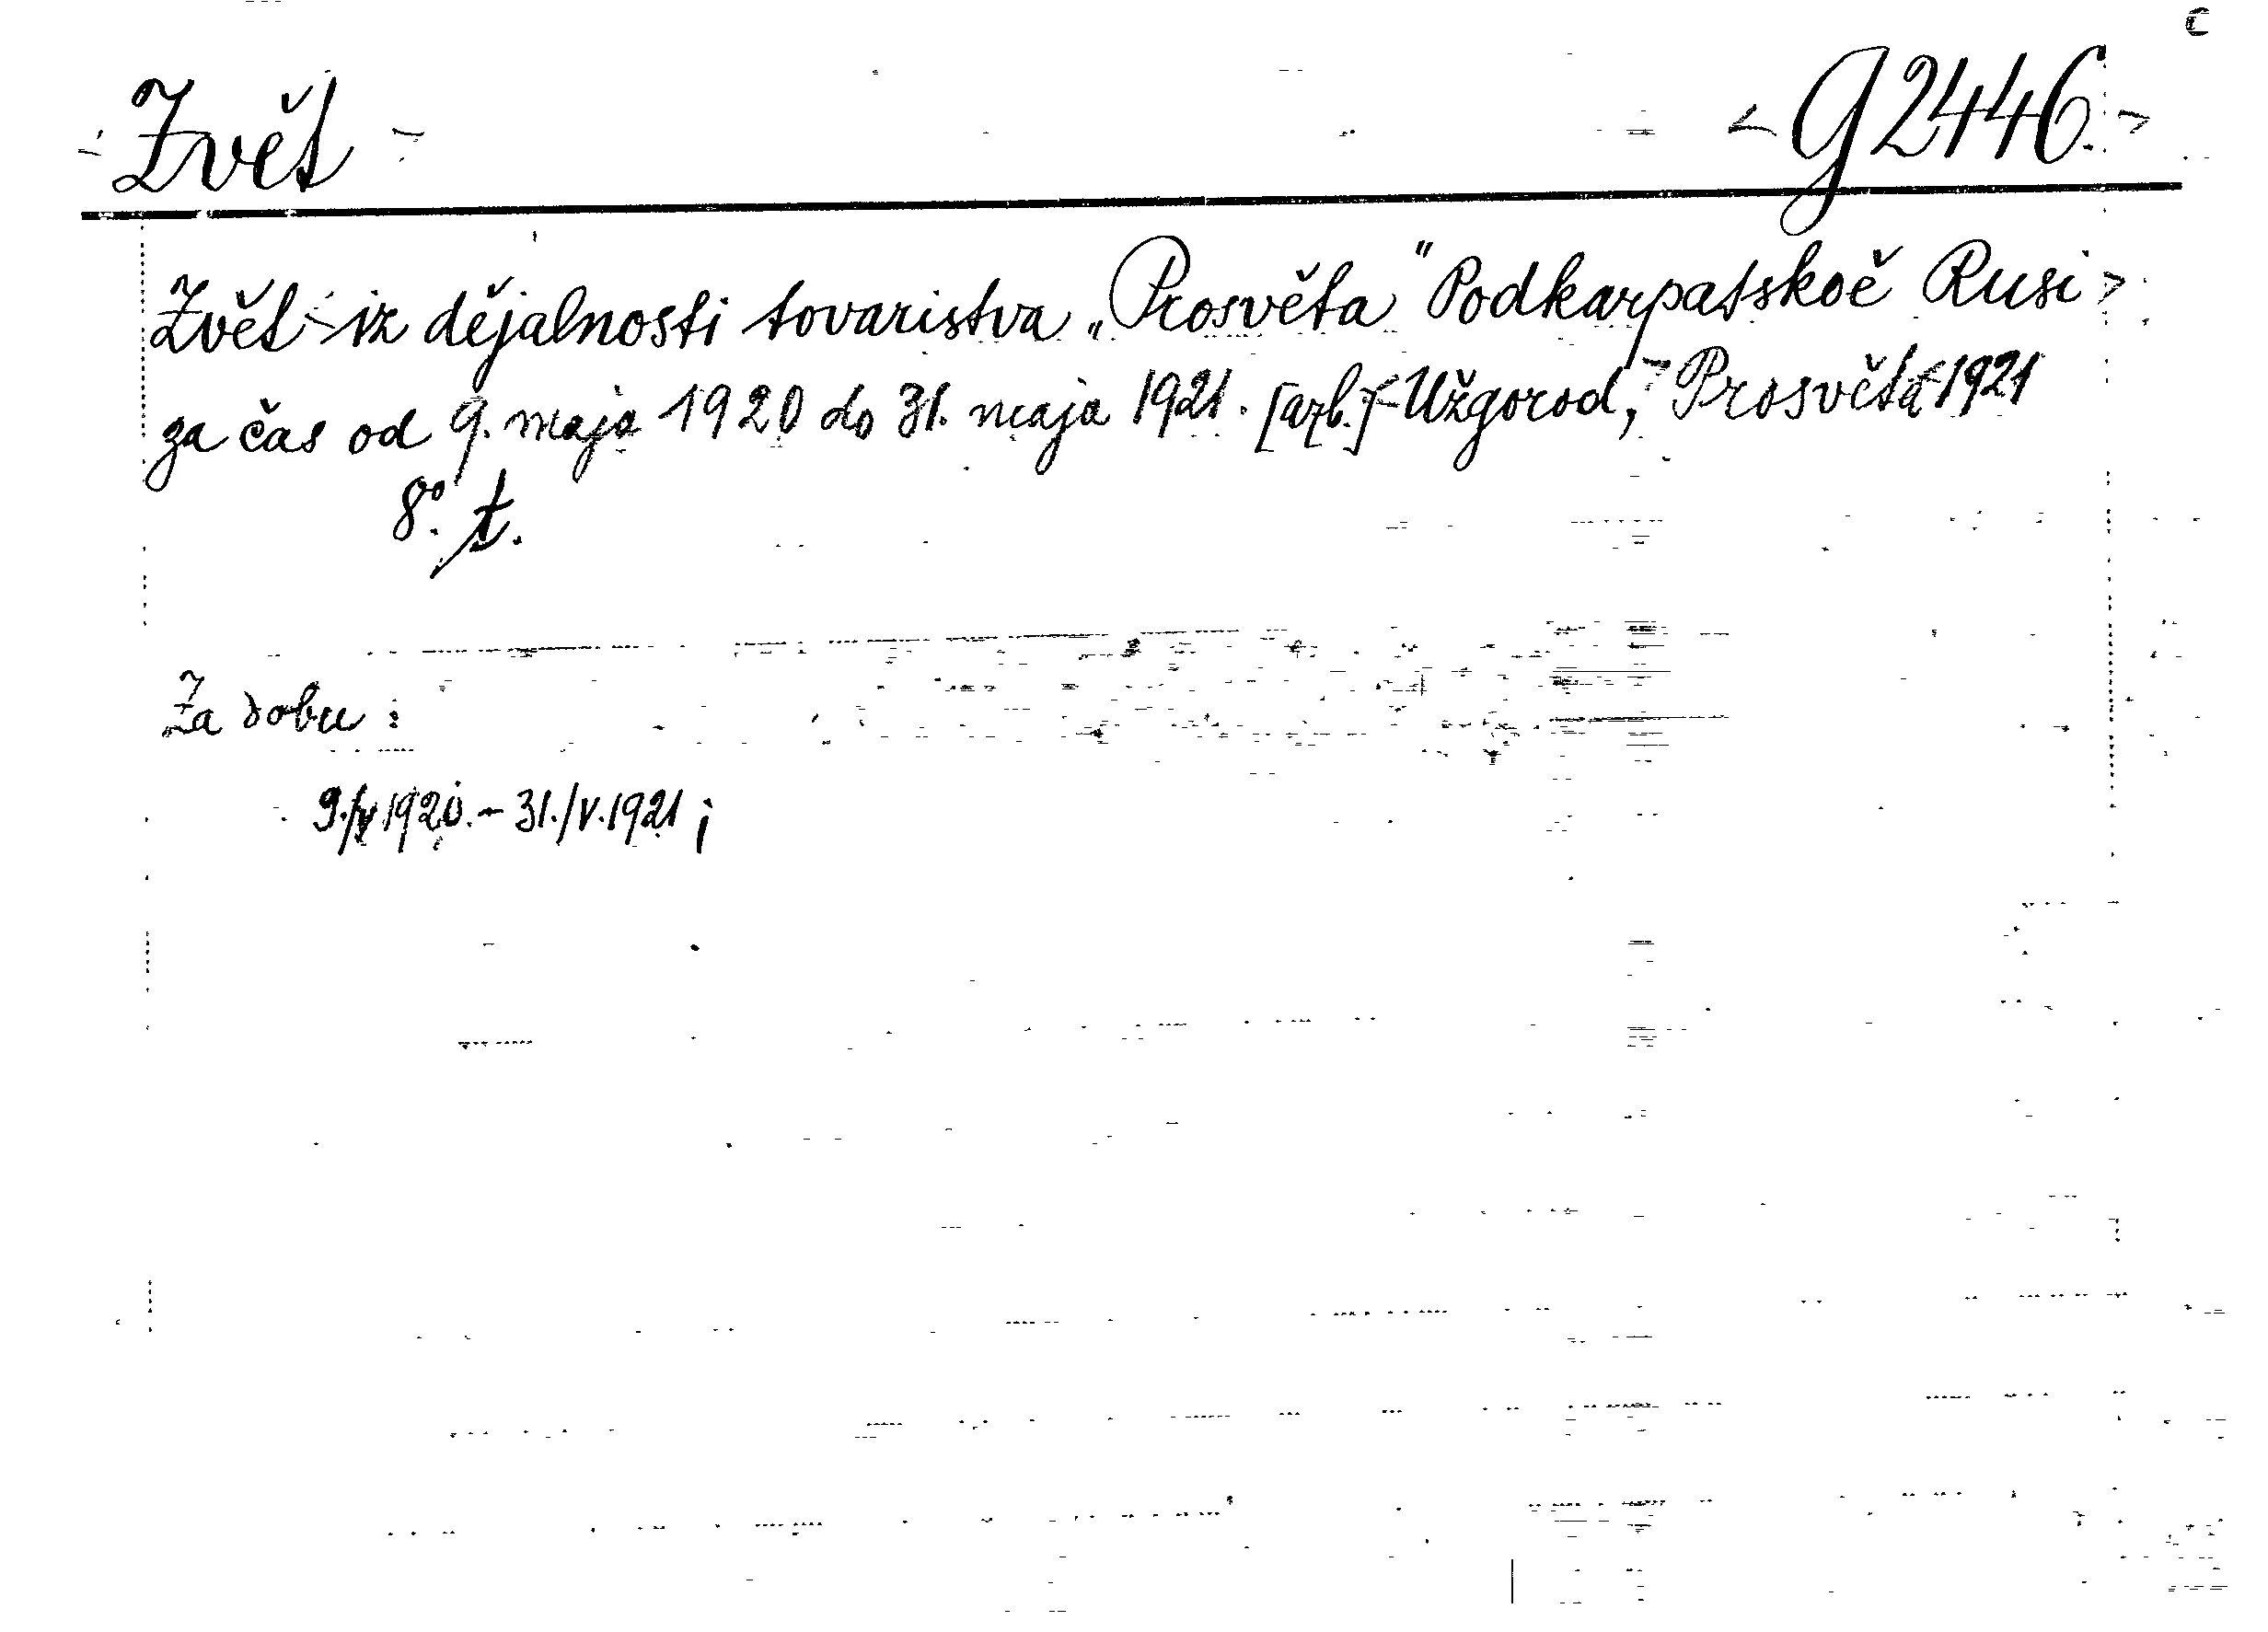 C
Zvět G 2446.
Zvět iz dějalnosti tovaristva „Prosvěta" Podkarpatskoě Rusi
za čas od 9. maja 1920 do 31. maja 1921. [azb.] Užgorod, Prosvěta 1921
8°. t.
Za dobu:
9./V 1920. – 31./V. 1921;